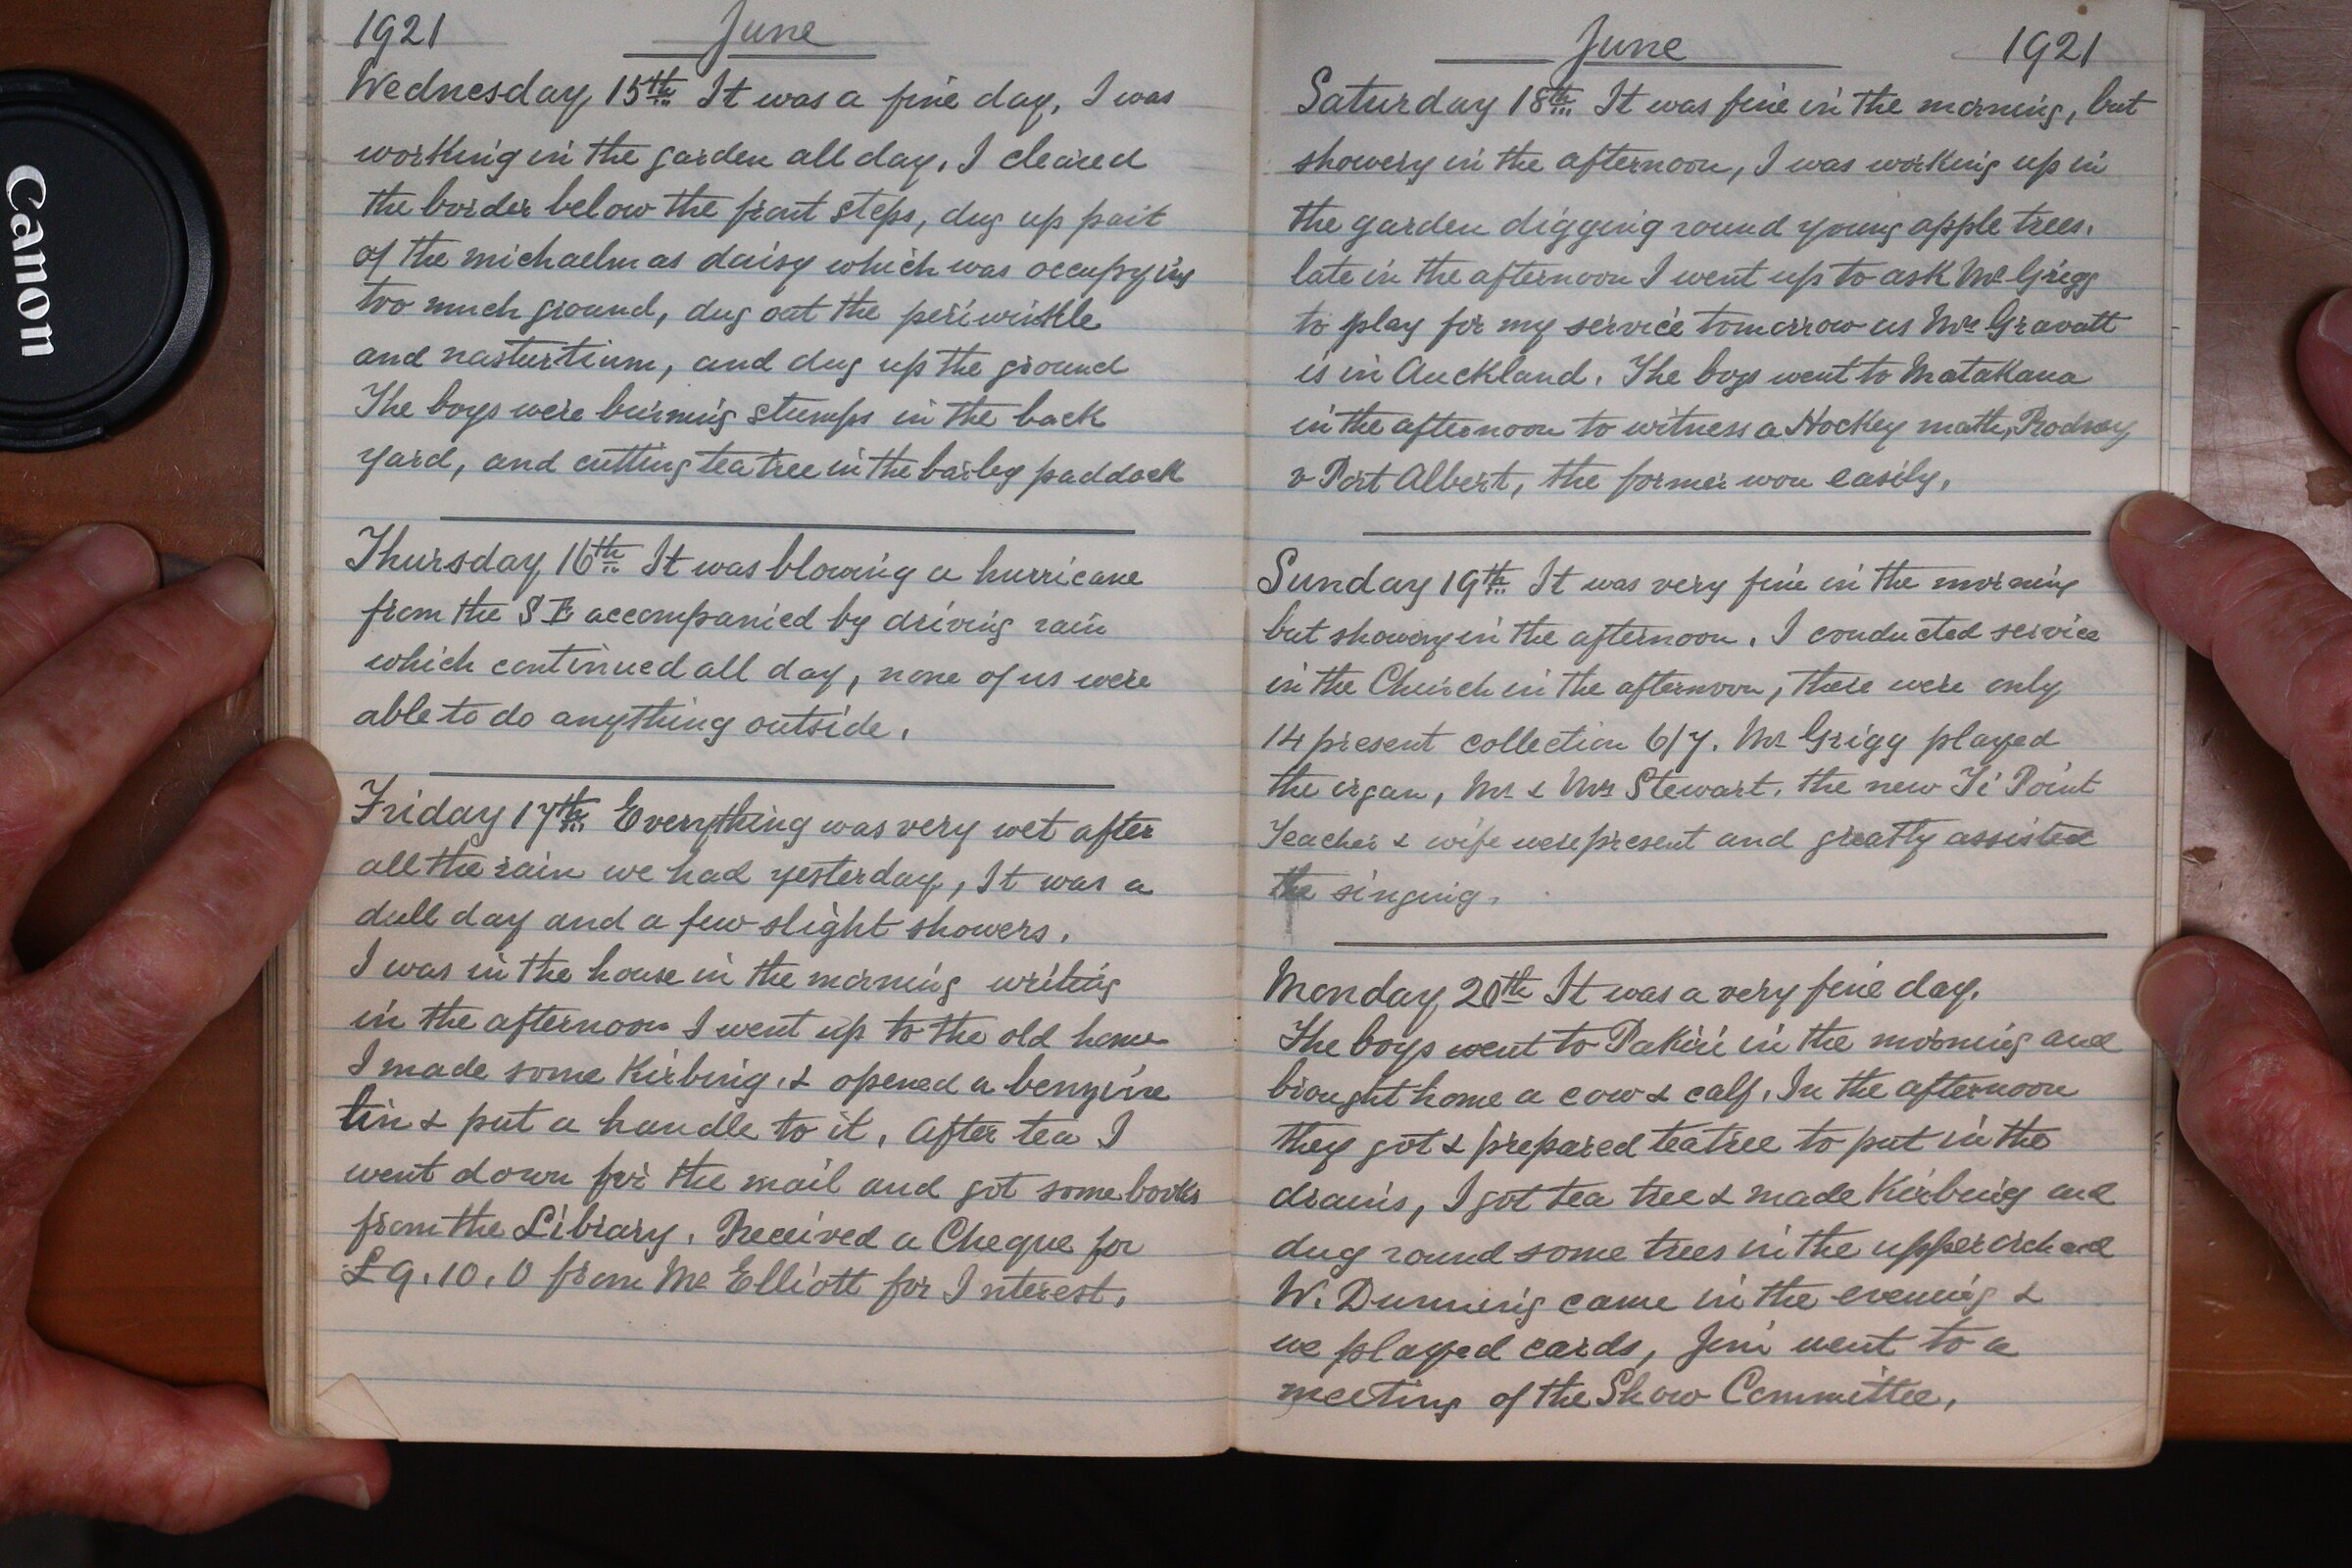 Canon
1921 June
Wednesday 15th It was a fine day, I was
working in the garden all day. I cleared
the border below the front steps, dug up part
of the michaelmas daisy which was occupying
too much ground, dug out the periwinkle
and nasturtium, and dug up the ground
The boys were burning stumps in the back
yard, and cutting tea tree in the barley paddock
Thursday 16th It was blowing a hurricane
from the S E accompanied by driving rain
which continued all day, none of us were
able to do anything outside.
Friday 17th Everything was very wet after
all the rain we had yesterday, It was a
dull day and a few slight showers.
I was in the house in the morning writing
in the afternoon I went up to the old home
I made some Kirbing, & opened a benzine
tin & put a handle to it. After tea I
went down for the mail and got some books
from the Library. Received a Cheque for
£9.10.0 from Mr Elliott for Interest.
June 1921
Saturday 18th It was fine in the morning, but
showery in the afternoon, I was working up in
the garden digging round young apple trees.
late in the afternoon I went up to ask Mr Grigg
to play for my service tomorrow as Mrs Gravatt
is in Auckland. The boys went to Matakana
in the afternoon to witness a Hockey math, Rodney
v Port Albert, the former won easily.
Sunday 19th It was very fine in the morning
but showery in the afternoon. I conducted service
in the Church in the afternoon, there were only
14 present collection 6/7. Mr Grigg played
the organ, Mr & Mrs Stewart. the new Ti Point
Teacher & wife were present and greatly assisted
the singing.
Monday 20th It was a very fine day.
The boys went to Pakiri in the morning and
brought home a cow & calf. In the afternoon
they got & prepared teatree to put in the
drains, I got tea tree & made Kirbing and
dug round some trees in the upper orchard
W. Dunning came in the evening &
we played cards, Jim went to a
meeting of the Show Committee.